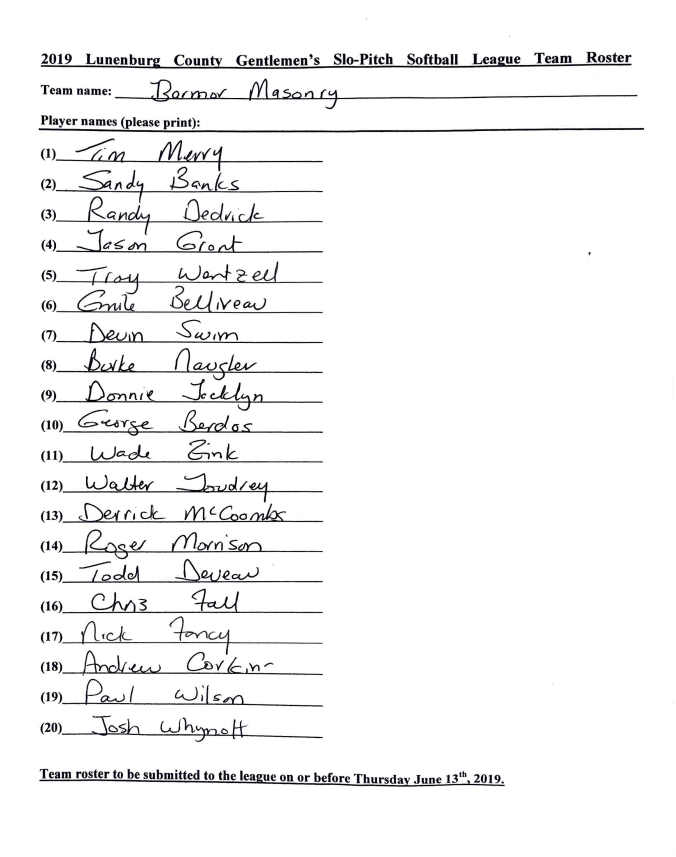 2019 Lunenburg County Gentlemen's Slo-Pitch Softball League Team Roster
Team name: Barmor Masonry
Player names (please print):
(1) Tim Merry
(2) Sandy Banks
(3) Randy Dedrick
(4) Jason Grant
(5) Troy Wentzell
(6) Emile Belliveau
(7) Devin Swim
(8) Burke Naugler
(9) Donnie Jocklyn
(10) George Berdas
(11) Wade Zink
(12) Walter Joudrey
(13) Derrick McCoombs
(14) Roger Morrison
(15) Todd Deveau
(16) Chris Fall
(17) Nick Fancy
(18) Andrew Corkin
(19) Paul Wilson
(20) Josh Whynott
Team roster to be submitted to the league on or before Thursday June 13th, 2019.